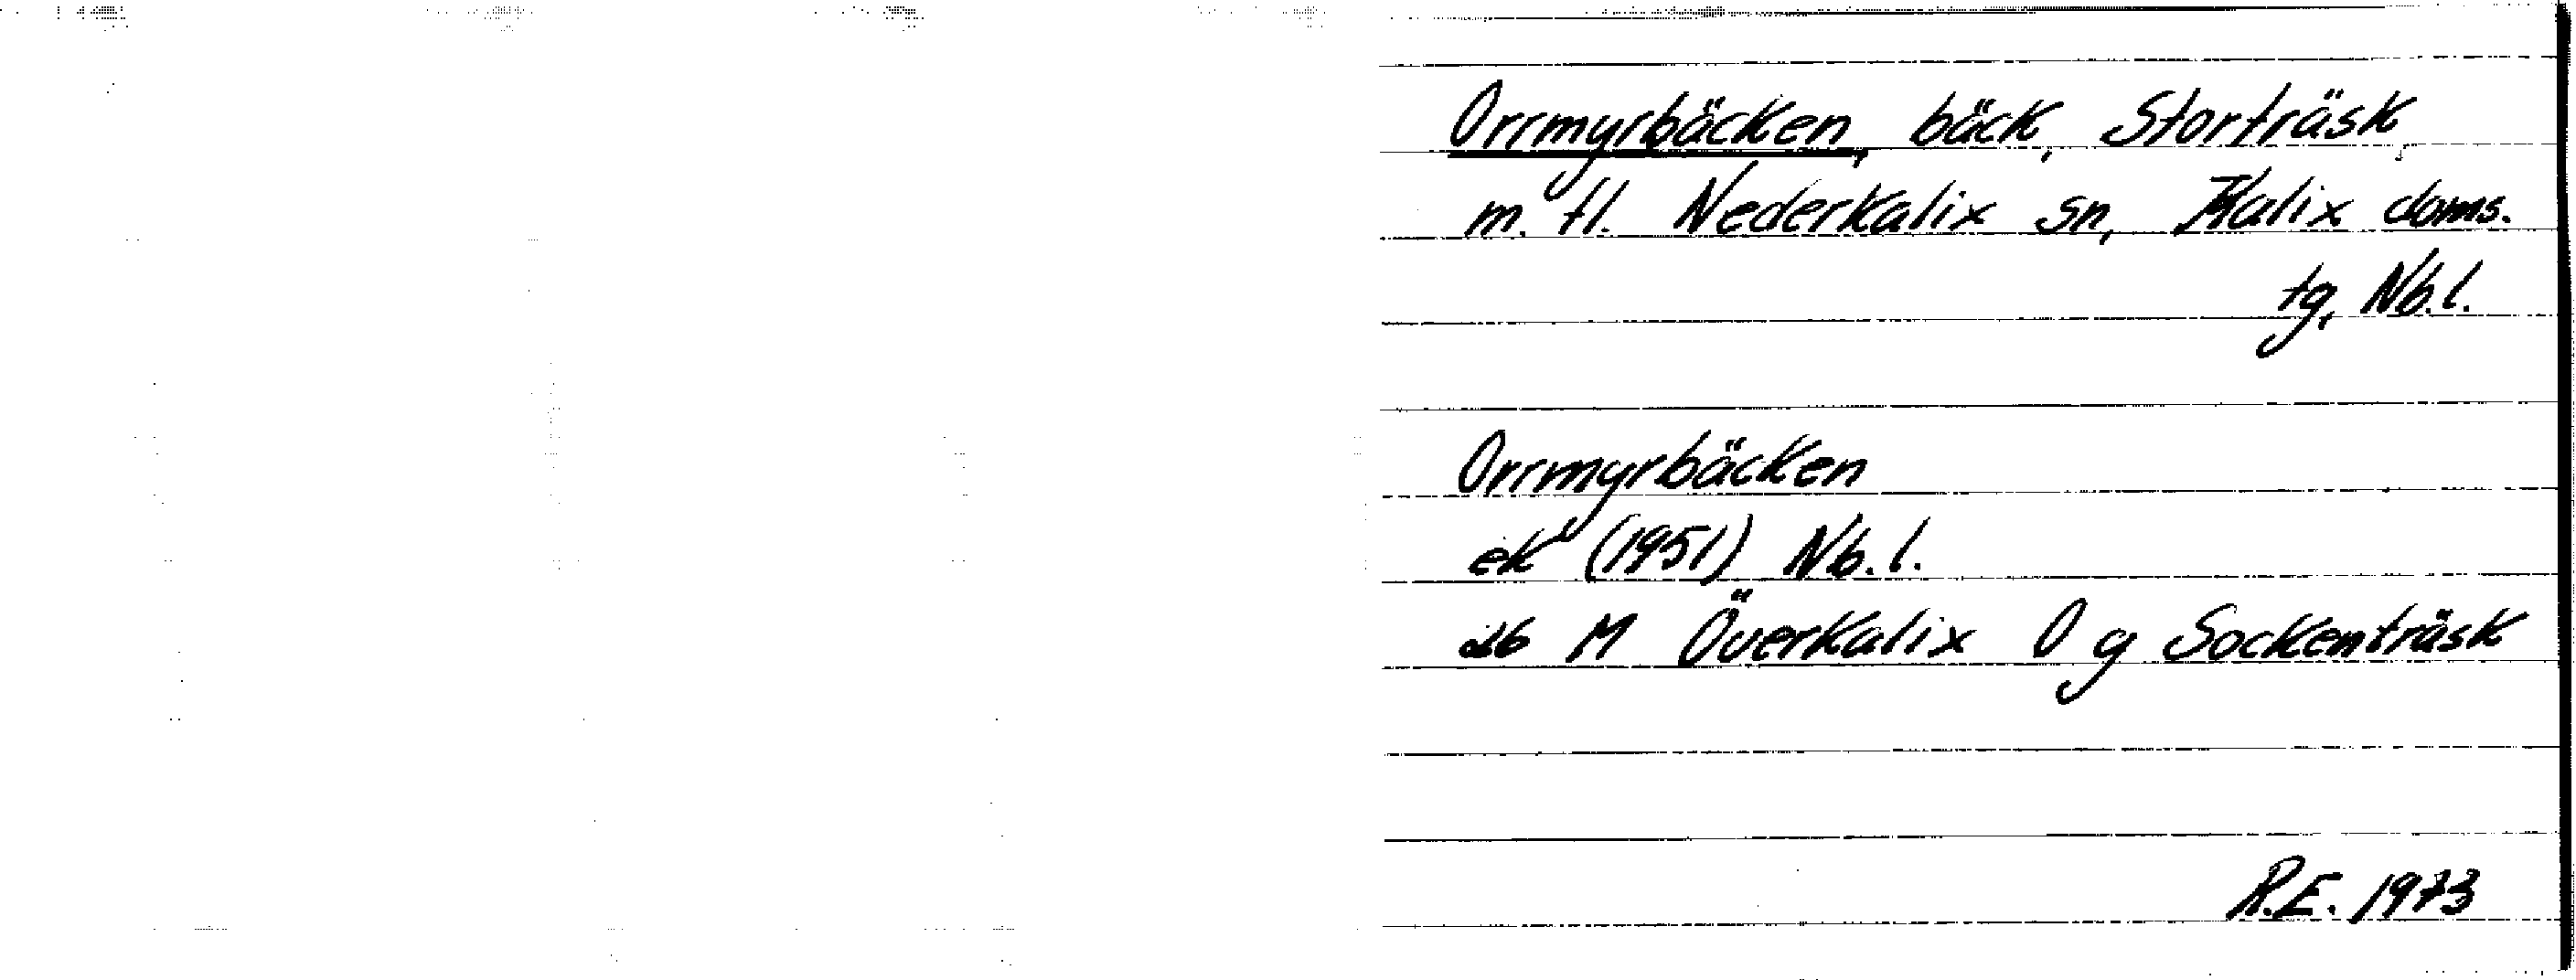 Orrmyrbäcken, bäck, Storträsk,
m. fl. Nederkalix sn, Kalix doms.
tg, Nb.l.
Orrmyrbäcken
ek (1951) Nb.l.
26 M Överkalix O g Sockenträsk
R.E. 1973